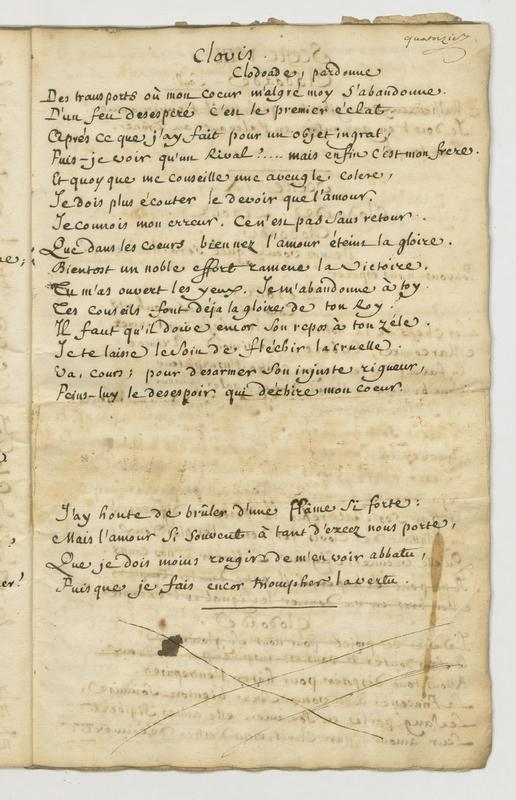 quatorzie
Clovis.
Clodoade, pardonne
Des transports où mon coeur malgré moy s'abandonne.
D'un feu desesperé c'est le premier éclat.
Aprés ce que j'ay fait pour un objet ingrat,
Puis-je voir qu'un Rival?.... mais enfin c'est mon frere.
Et quoy que me conseille une aveugle colere,
Je dois plus écouter le devoir que l'amour.
Je connois mon erreur. Ce n'est pas sans retour.
Que dans les coeurs bien nez l'amour éteint la gloire.
Bientost un noble effort ramene la victoire.
Tu m'as ouvert les yeux. Je m'abandonne à toy.
Tes conseils font déja la gloire de ton Roy.
Il faut qu'il doive encor son repos à ton zéle.
Je te laisse le soin de fléchir la cruelle.
Va, cours; pour desarmer son injuste rigueur,
Peins-luy le desespoir qui déchire mon coeur.
J'ay honte de brûler d'une flâme si forte:
Mais l'amour si souvent à tant d'excez nous porte,
Que je dois moins rougir de m'en voir abbatu,
Puisque je fais encor triompher la vertu.